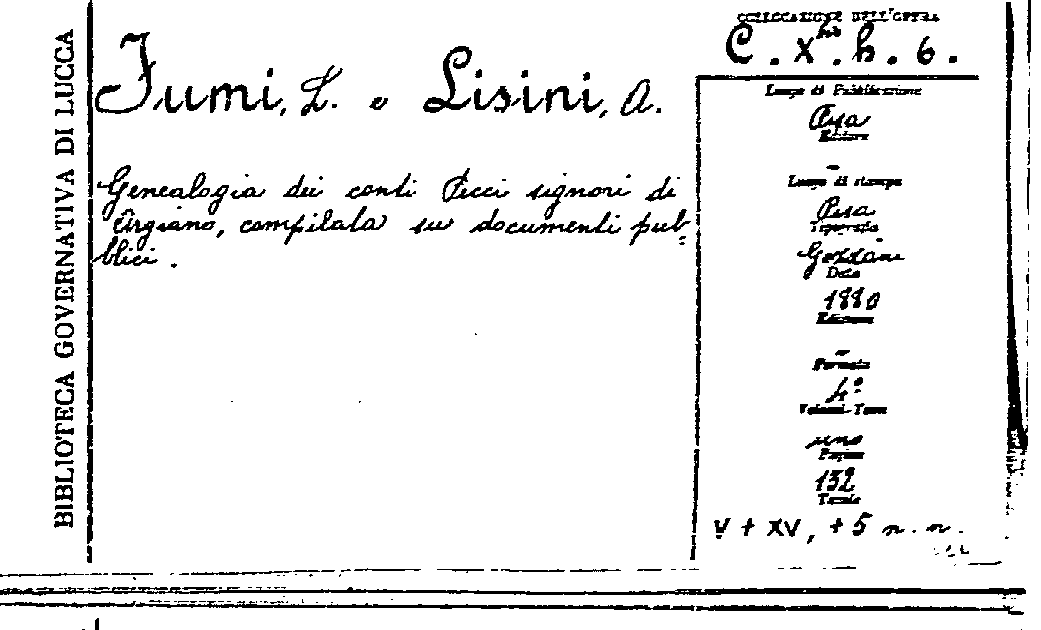 BIBLIOTECA GOVERNATIVA DI LUCCA
Fumi, L. e Lisini, A.
Genealogia dei conti Pecci signori di
Argiano, compilata su documenti pub=
blici.
COLLOCAZIONE DELL'OPERA
C. X bis. h. 6.
Luogo di Pubblicazione
Pisa
Editore
–
Luogo di stampa
Pisa
Tipografia
Gozzani
Data
1880
Edizione
–
Formato
4º
Volumi-Tomi
uno
Pagine
132
Tavole
V + XV, + 5 n. n.